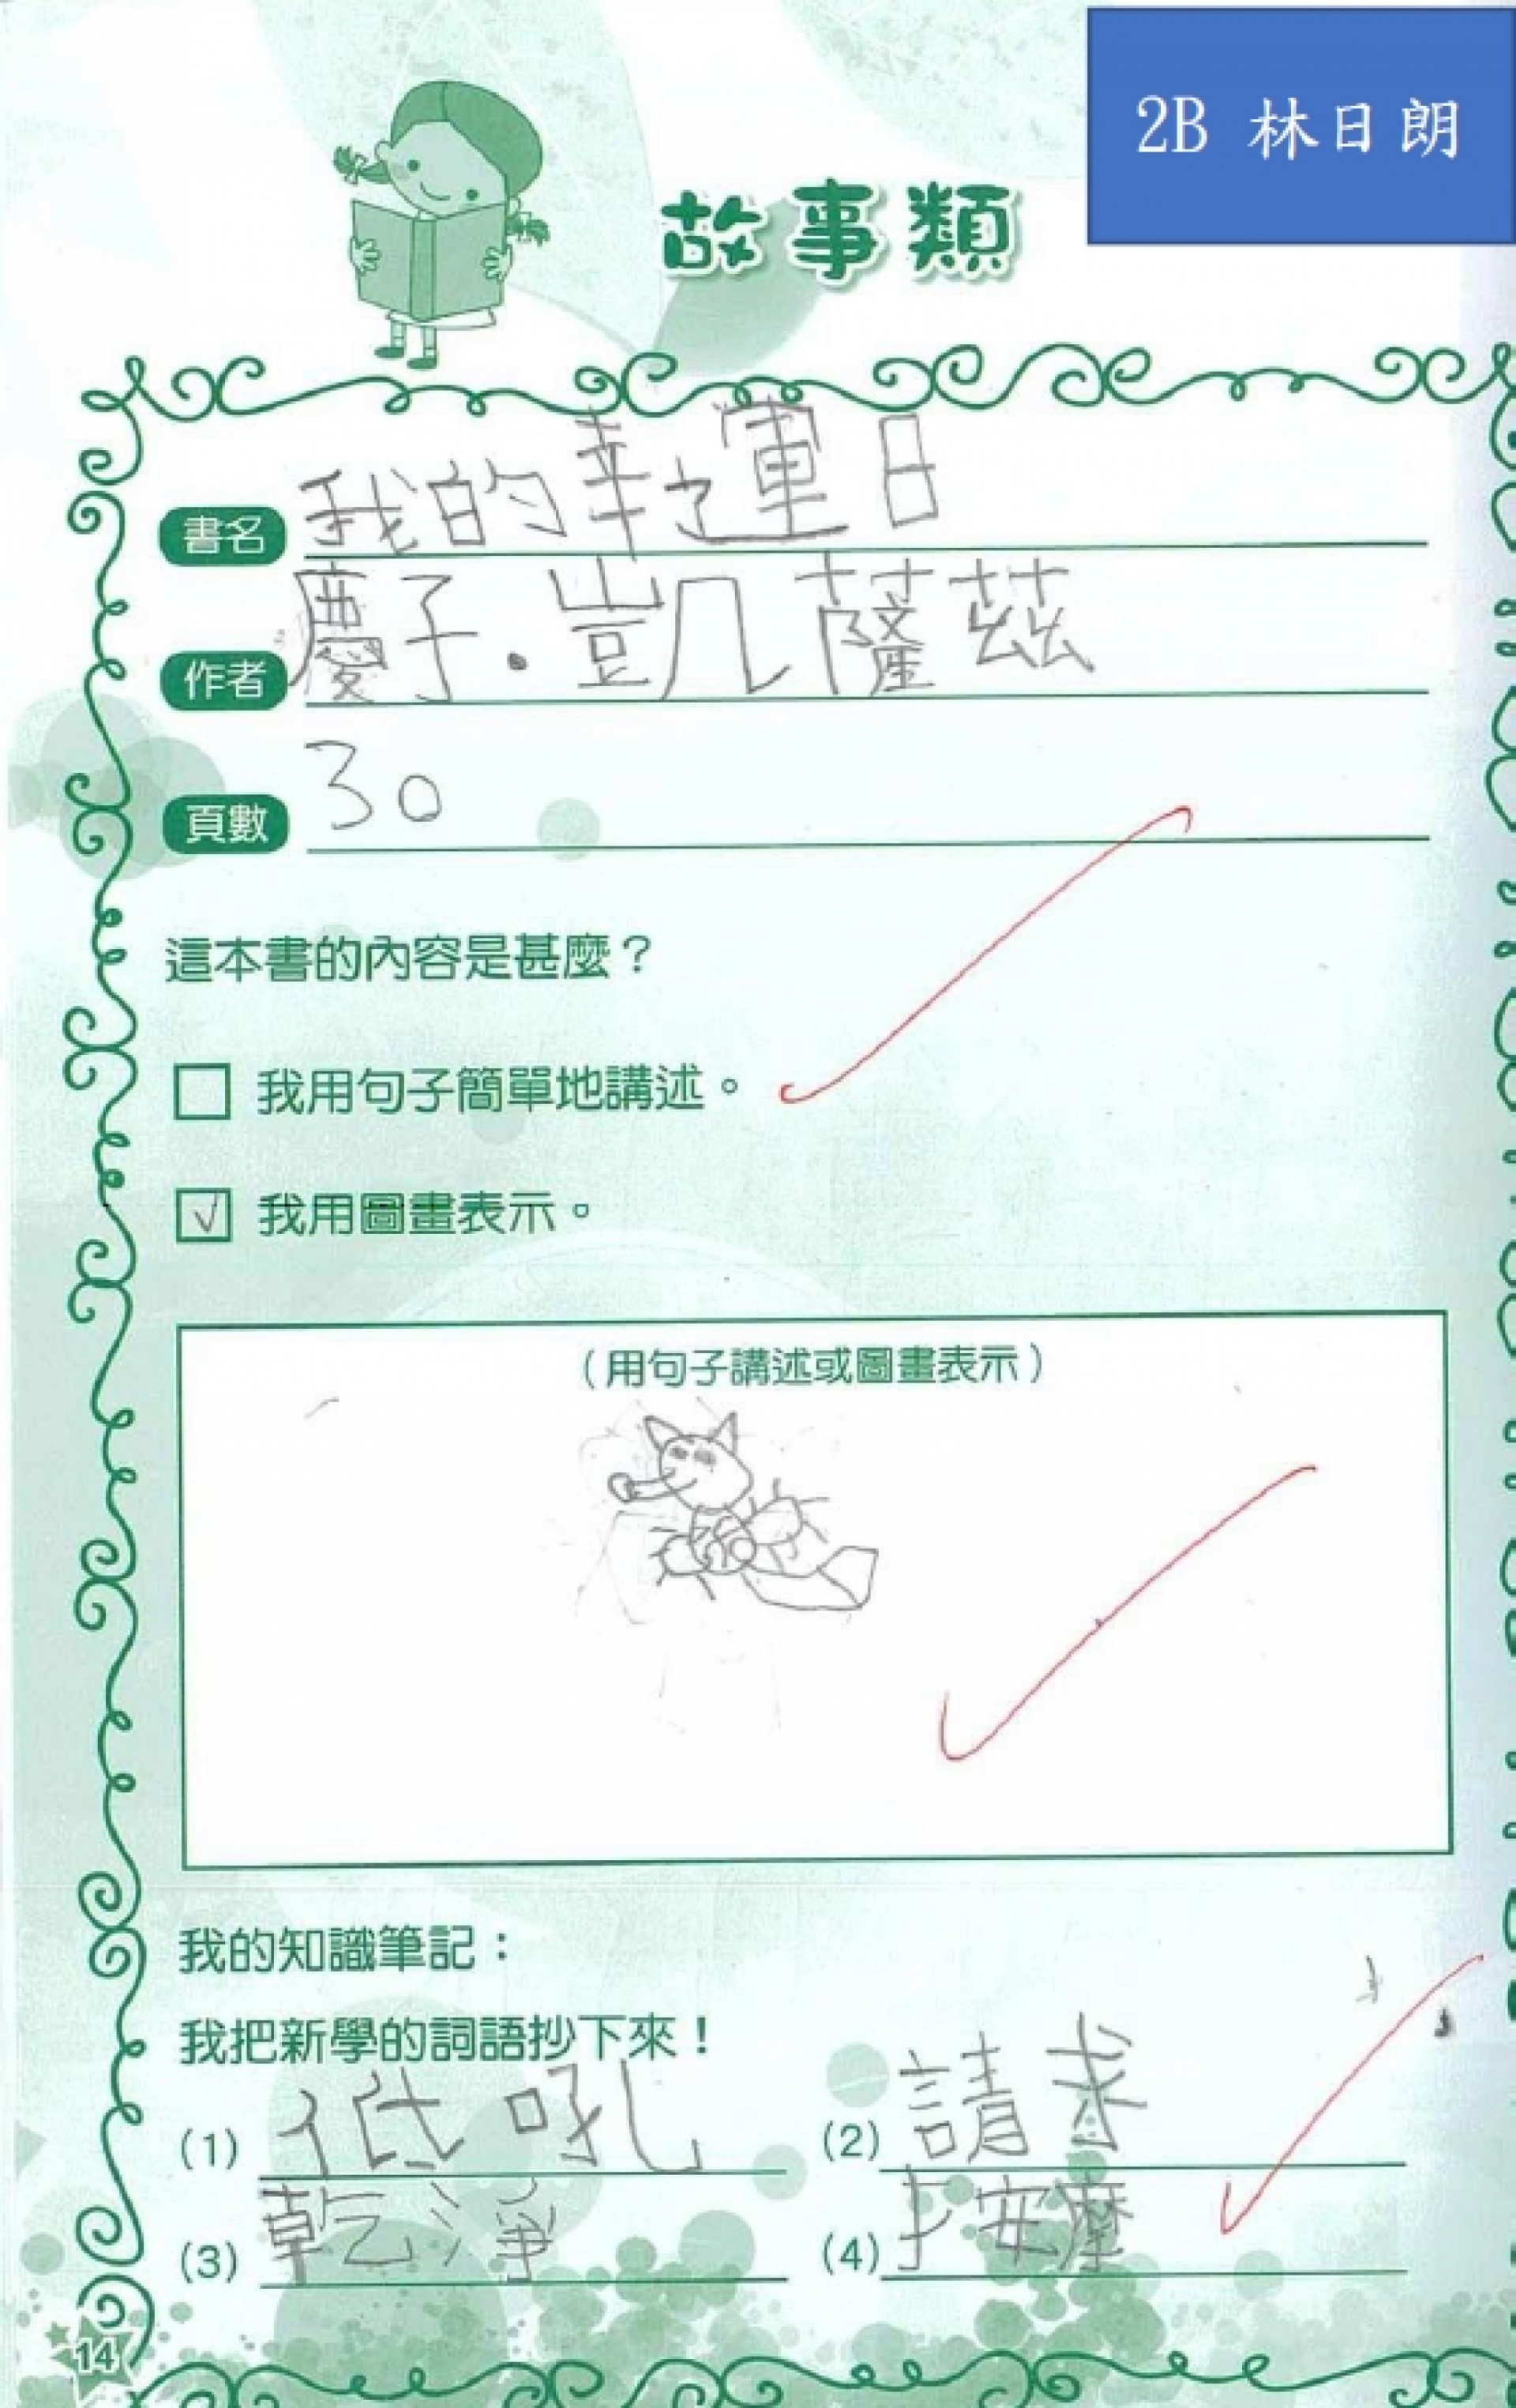 2B 林日朗
故事類
書名 我的幸運日
作者 慶子.凱薩茲
頁數 30
這本書的內容是甚麼？
我用句子簡單地講述。
√ 我用圖畫表示。
（用句子講述或圖畫表示）
我的知識筆記：
我把新學的詞語抄下來！
(1) 低吼 (2) 請求
(3) 乾淨 (4) 按摩
14